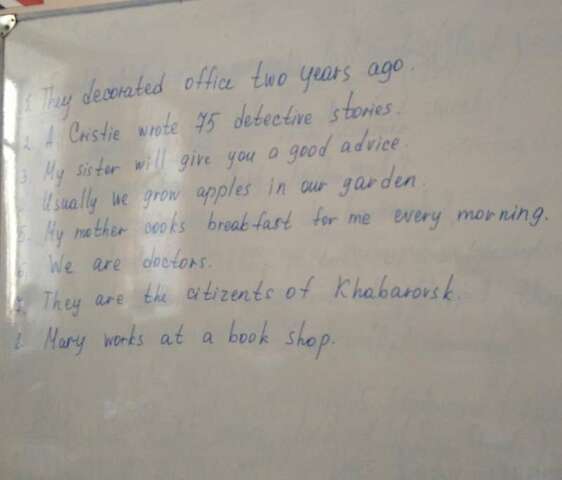 1. They decorated office two years ago.
2. A Cristie wrote 75 detective stories.
3. My sister will give you a good advice.
Usually we grow apples in our garden.
5. My mother cooks breakfast for me every morning.
6. We are doctors.
7. They are the citizents of Khabarovsk.
8. Mary works at a book shop.